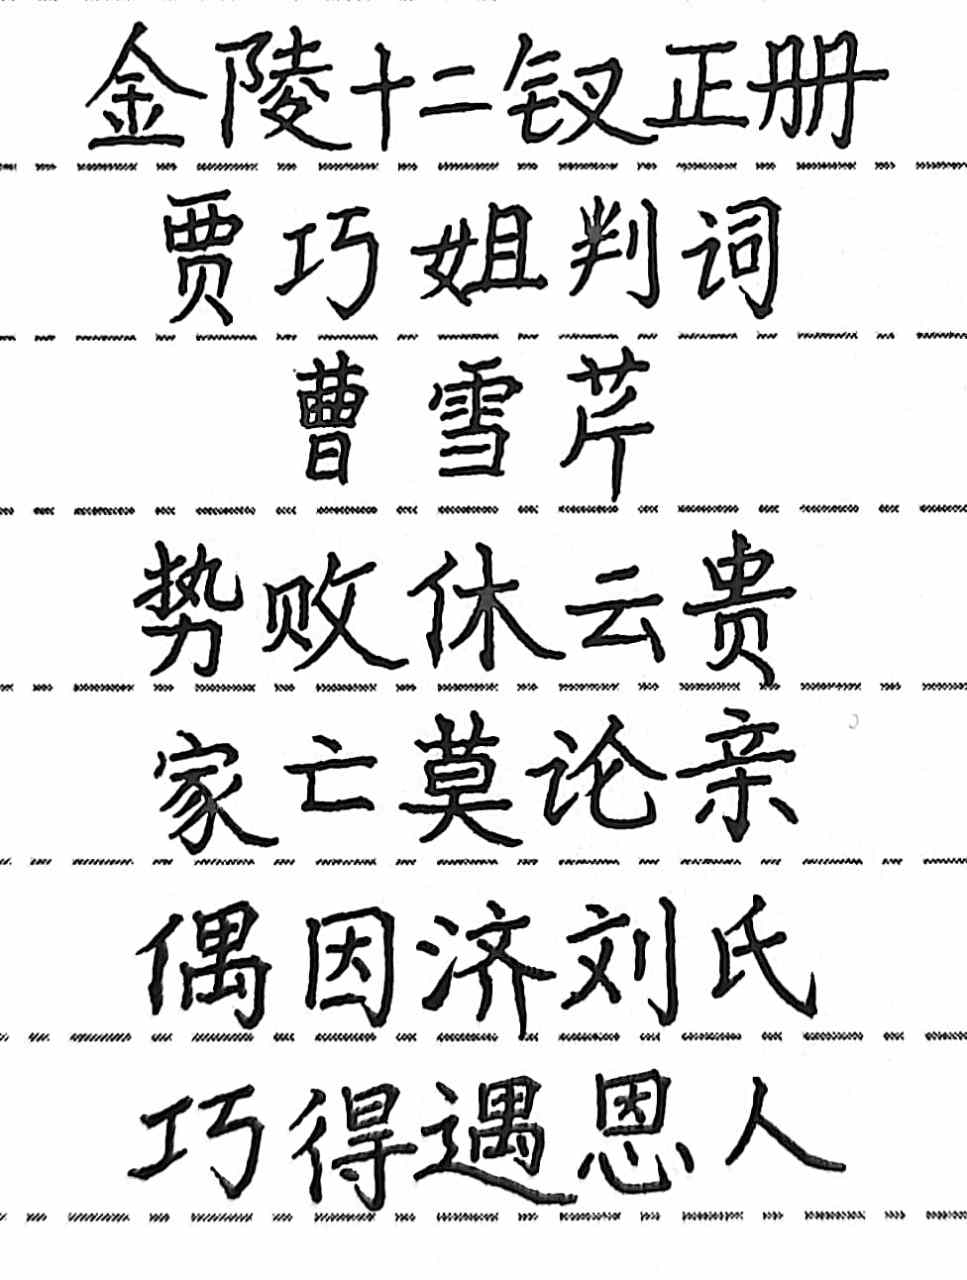 金陵十二钗正册
贾巧姐判词
曹雪芹
势败休云贵
家亡莫论亲
偶因济刘氏
巧得遇恩人